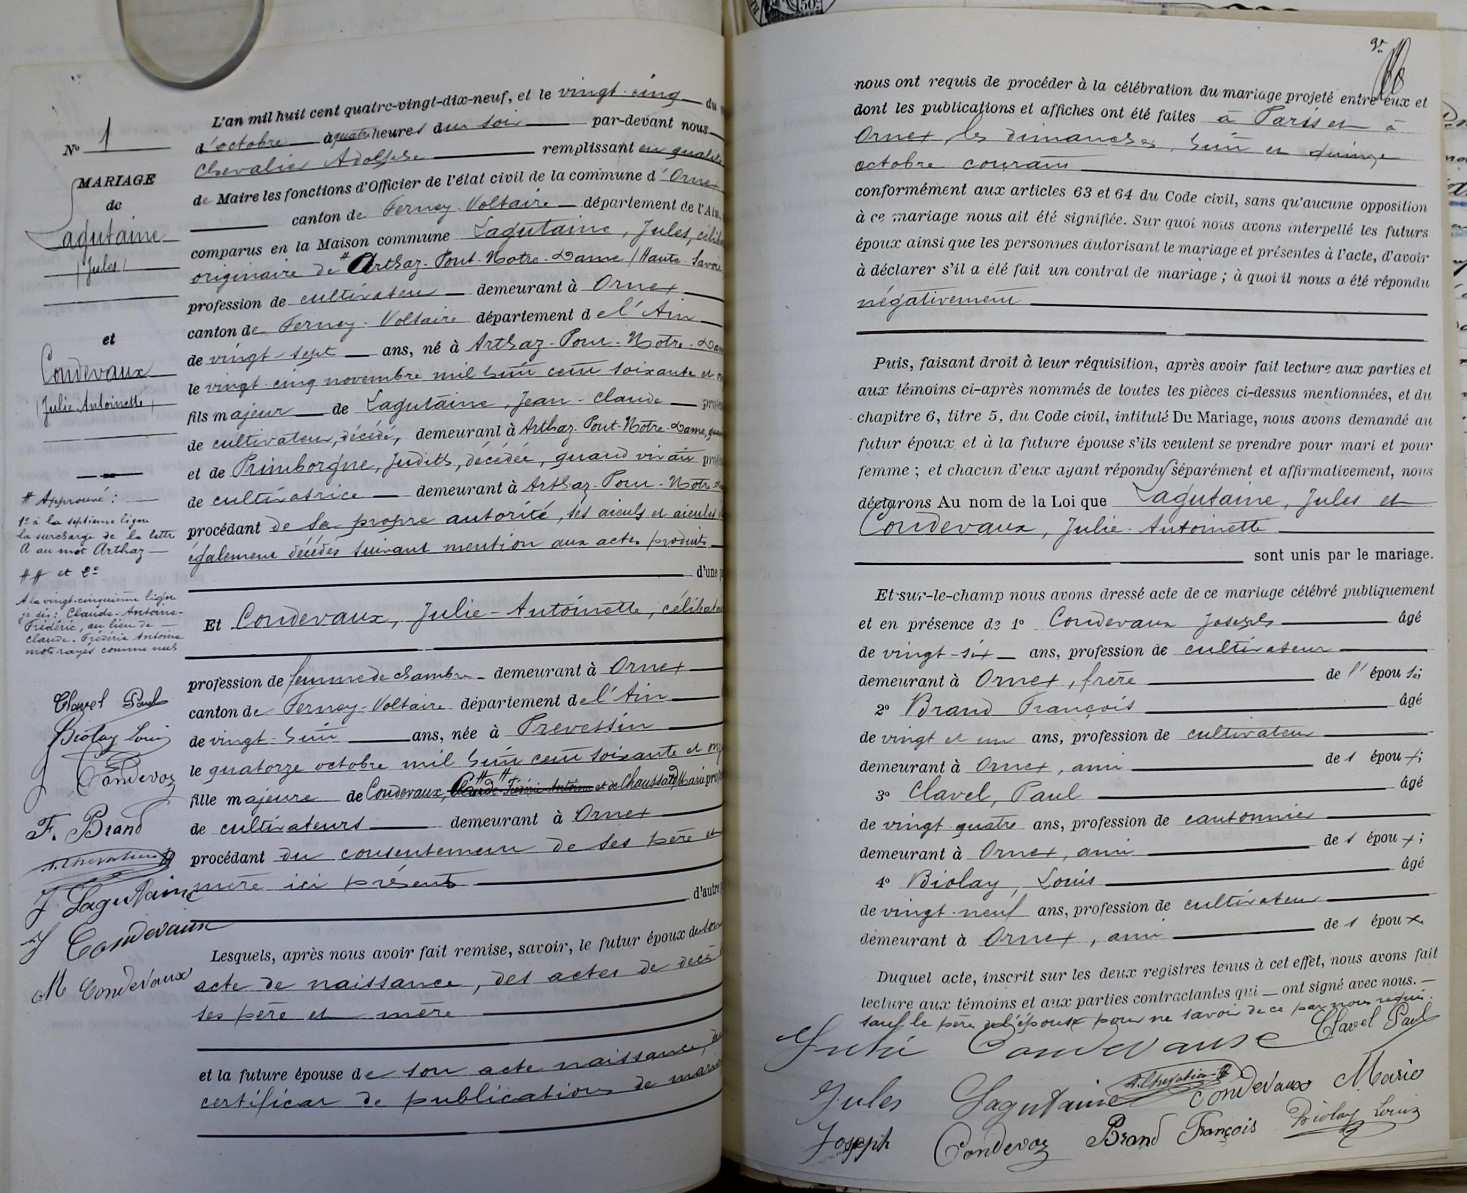 N° 1
MARIAGE
de
Lagutaine
(Jules)
et
Condevaux
(Julie-Antoinette)
# Approuvé :
1° à la septième ligne
la surcharge de la lettre
A au mot Arthaz
## et 2°
A la vingt-cinquième ligne
Claude-Antoine-
Frédéric, au lieu de
Claude-Frédéric Antoine
mots rayés comme nuls
Clavel Paul
Biolay Louis
J Condevaz
F. Brand
J Lagutaine
J Condevaux
M Condevaux
L'an mil huit cent quatre-vingt-dix-neuf, et le vingt-cinq du
d'octobre à quatre heures du soir par-devant nous
Chevalier Adolphe remplissant en qualité
de Maire les fonctions d'Officier de l'état civil de la commune d'Ornex
canton de Ferney-Voltaire département de l'Ain
comparus en la Maison commune Lagutaine, Jules,
originaire de # Arthaz-Pont-Notre-Dame (Haute-Savoie
profession de cultivateur demeurant à Ornex
canton de Ferney-Voltaire département de l'Ain
de vingt-sept ans, né à Arthaz-Pont-Notre-
le vingt-cinq novembre mil huit cent soixante et
fils majeur de Lagutaine, Jean-Claude
de cultivateur, décédé, demeurant à Arthaz-Pont-Notre-Dame,
et de Primborgne, Judith, décédée, quand vivait
de cultivatrice demeurant à Arthaz-Pont-Notre-
procédant de sa propre autorité, ses aieuls et aieules
également décédés suivant mention aux actes produits
d'une
Et Condevaux, Julie-Antoinette,
profession de femme de chambre demeurant à Ornex
canton de Ferney-Voltaire département de l'Ain
de vingt-huit ans, née à Prevessin
le quatorze octobre mil huit cent soixante et
fille majeure de Condevaux, ## Claude-Frédéric Antoine et de Chaussard Marie
de cultivateurs demeurant à Ornex
procédant du consentement de ses père et
mère ici présents
d'autre
Lesquels, après nous avoir fait remise, savoir, le futur époux de son
acte de naissance, des actes de décès
ses père et mère
et la future épouse de son acte naissance,
certificat de publications de
nous ont requis de procéder à la célébration du mariage projeté entre eux et
dont les publications et affiches ont été faites à Paris et à
Ornex les dimanches huit et quinze
octobre courant
conformément aux articles 63 et 64 du Code civil, sans qu'aucune opposition
à ce mariage nous ait été signifiée. Sur quoi nous avons interpellé les futurs
époux ainsi que les personnes autorisant le mariage et présentes à l'acte, d'avoir
à déclarer s'il a été fait un contrat de mariage ; à quoi il nous a été répondu
négativement
Puis, faisant droit à leur réquisition, après avoir fait lecture aux parties et
aux témoins ci-après nommés de toutes les pièces ci-dessus mentionnées, et du
chapitre 6, titre 5, du Code civil, intitulé Du Mariage, nous avons demandé au
futur époux et à la future épouse s'ils veulent se prendre pour mari et pour
femme ; et chacun d'eux ayant répondu séparément et affirmativement, nous
déclarons Au nom de la Loi que Lagutaine, Jules et
Condevaux, Julie-Antoinette
sont unis par le mariage.
Et sur-le-champ nous avons dressé acte de ce mariage célébré publiquement
et en présence de 1° Condevaux Joseph âgé
de vingt-six ans, profession de cultivateur
demeurant à Ornex, frère de l'épouse;
2° Brand François âgé
de vingt et un ans, profession de cultivateur
demeurant à Ornex, ami de s époux;
3° Clavel, Paul âgé
de vingt quatre ans, profession de cantonnier
demeurant à Ornex, ami de s époux;
4° Biolay, Louis âgé
de vingt-neuf ans, profession de cultivateur
demeurant à Ornex, ami de s époux
Duquel acte, inscrit sur les deux registres tenus à cet effet, nous avons fait
lecture aux témoins et aux parties contractantes qui ont signé avec nous.
sauf le père de l'épouse pour ne savoir de ce par nous requis.
Julie Condevaux Clavel Paul
Jules Lagutaine Condevaux Marie
Joseph Condevaz Brand François Biolay Louis